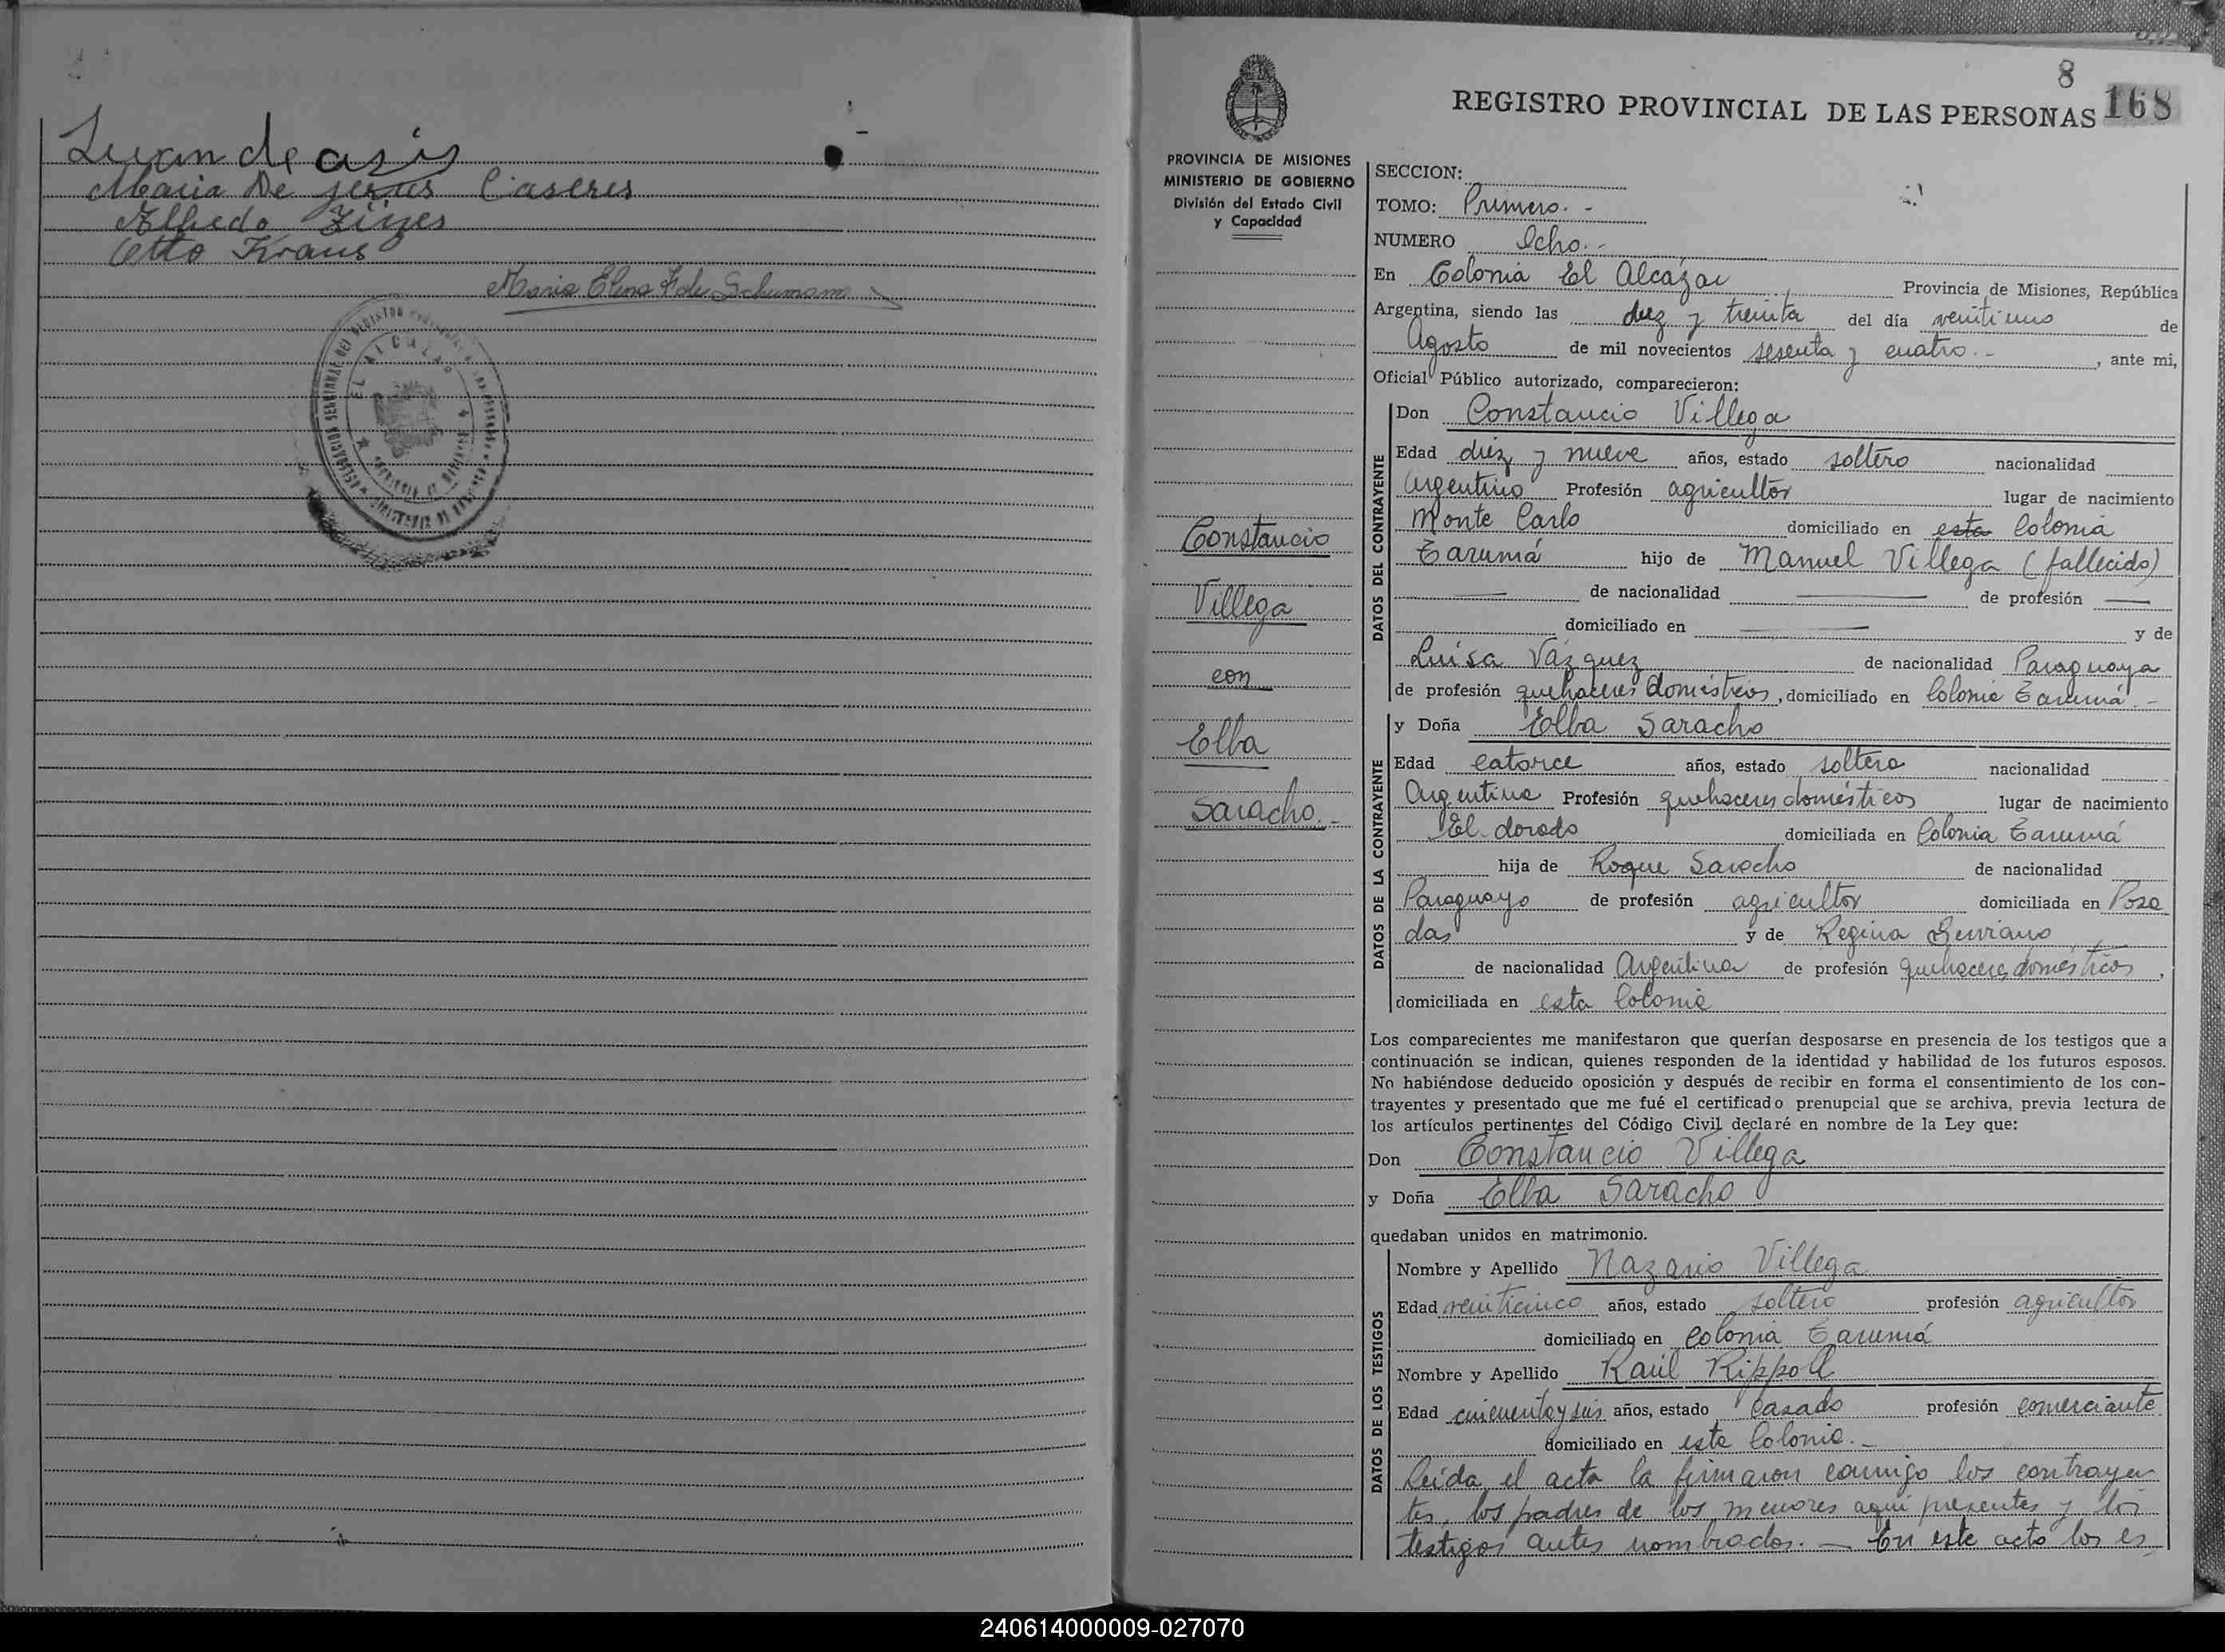 Juan de asis
Maria De Jesus Caseres
Alfredo
Otto Kraus
Maria Elena F de Schumann
EL ALCAZAR
8
REGISTRO PROVINCIAL DE LAS PERSONAS 168
PROVINCIA DE MISIONES
MINISTERIO DE GOBIERNO
División del Estado Civil
y Capacidad
Constancio
Villega
con
Elba
Saracho.-
SECCION:
TOMO: Primero.-
NUMERO Ocho.-
En Colonia El Alcázar Provincia de Misiones, República
Argentina, siendo las diez y treinta del día veintiuno de
Agosto de mil novecientos sesenta y cuatro.-, ante mi,
Oficial Público autorizado, comparecieron:
DATOS DEL CONTRAYENTE
Don Constancio Villega
Edad diez y nueve años, estado soltero nacionalidad
argentino Profesión agricultor lugar de nacimiento
Monte Carlo domiciliado en esta Colonia
Tarumá hijo de Manuel Villega (fallecido)
de nacionalidad de profesión
domiciliado en y de
Luisa Vázquez de nacionalidad Paraguaya
de profesión quehaceres domésticos, domiciliado en Colonia Tarumá.-
DATOS DE LA CONTRAYENTE
y Doña Elba Saracho
Edad catorce años, estado soltera nacionalidad
Argentina Profesión quehaceres domésticos lugar de nacimiento
El dorado domiciliada en Colonia Tarumá
hija de Roque Saracho de nacionalidad
Paraguayo de profesión agricultor domiciliada en Posa
das y de Regina
de nacionalidad Argentina de profesión quehaceres domésticos,
domiciliada en esta Colonia
Los comparecientes me manifestaron que querían desposarse en presencia de los testigos que a
continuación se indican, quienes responden de la identidad y habilidad de los futuros esposos.
No habiéndose deducido oposición y después de recibir en forma el consentimiento de los con-
trayentes y presentado que me fué el certificado prenupcial que se archiva, previa lectura de
los artículos pertinentes del Código Civil declaré en nombre de la Ley que:
Don Constancio Villega
y Doña Elba Saracho
quedaban unidos en matrimonio.
DATOS DE LOS TESTIGOS
Nombre y Apellido Nazario Villega
Edad veinticinco años, estado soltero profesión agricultor
domiciliado en Colonia Tarumá
Nombre y Apellido Raúl Rippoll
Edad cincuenta y seis años, estado casado profesión comerciante
domiciliado en esta Colonia.-
Leída el acta la firmaron conmigo los contrayen
tes, los padres de los menores aquí presentes y los
testigos antes nombrados. — En este acto los es
240614000009-027070